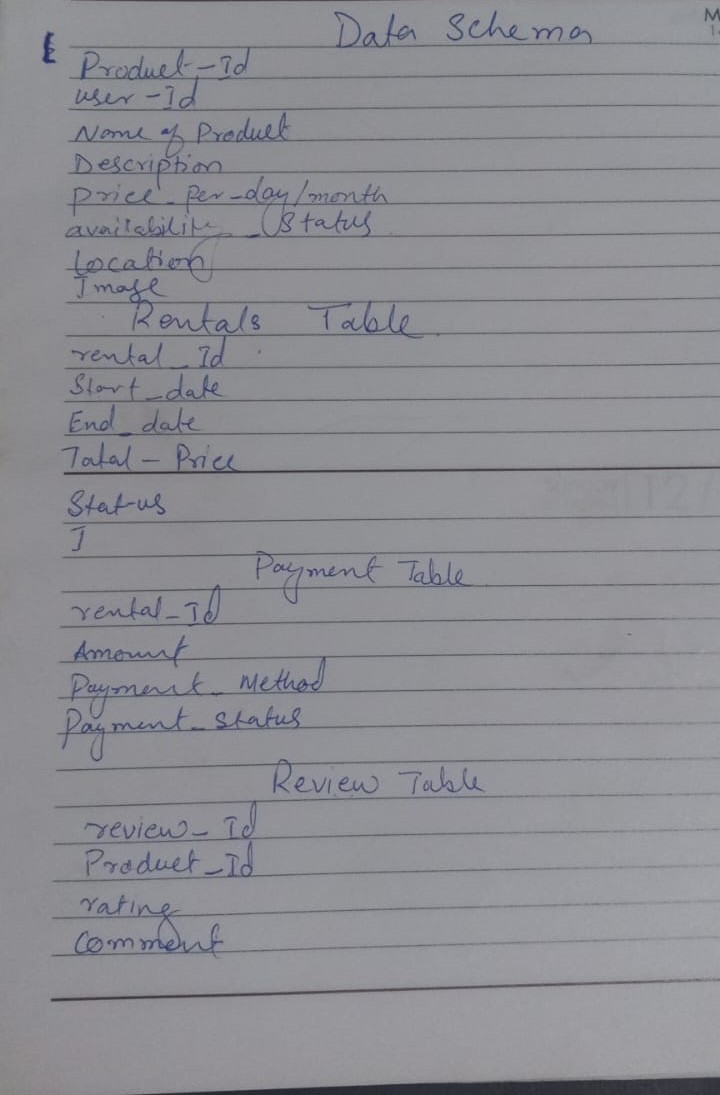 Data Schema
Product-Id
user-Id
Name of Product
Description
Price-Per-day/month
availability_Status
Location
Image
Rentals Table
rental_Id
Start_date
End_date
Total-Price
Status
I
Payment Table
rental-Id
Amount
Payment_Method
Payment_Status
Review Table
review_Id
Product_Id
rating
Comment